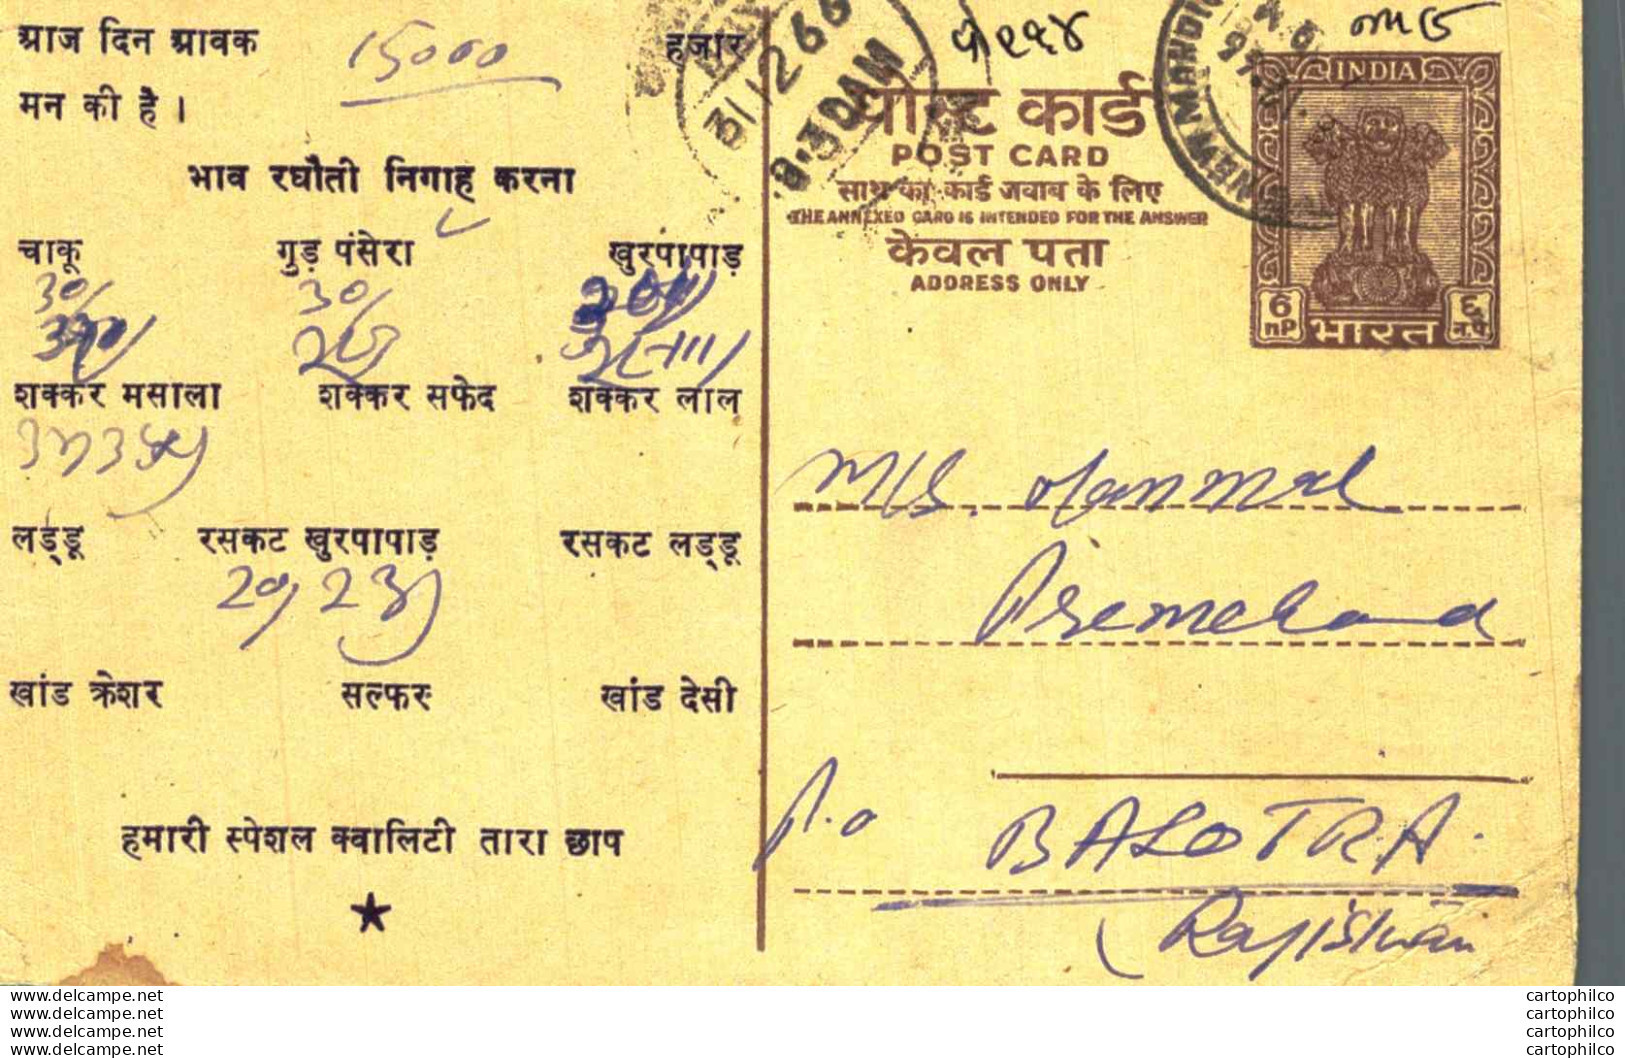 आज दिन आवक 15000 हजार
मन की है ।
भाव रघौती निगाह करना
चाकू गुड़ पंसेरा खुरपापाड़
30/ 30/
शक्कर मसाला शक्कर सफेद शक्कर लाल
लड्डू रसकट खुरपापाड़ रसकट लड्डू
खांड क्रेशर सल्फर खांड देसी
हमारी स्पेशल क्वालिटी तारा छाप
31 12 60
8-30AM
NEW MANDI
पोस्ट कार्ड
POST CARD
साथ का कार्ड जवाब के लिए
THE ANNEXED CARD IS INTENDED FOR THE ANSWER
केवल पता
ADDRESS ONLY
INDIA
6 nP भारत ६ न.पै.
M/S.
Premchand
P.o BALOTRA.
(Rajisthan
delcampe.net
delcampe.net
delcampe.net
delcampe.net
cartophilco
cartophilco
cartophilco
cartophilco